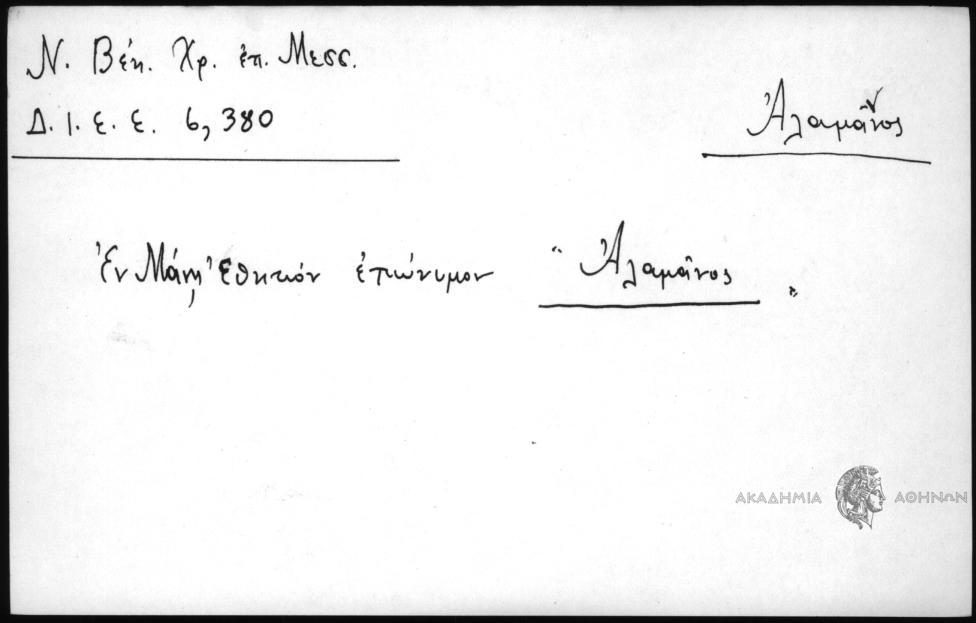 Ν. Βέη. Χρ. ἐπ. Μεσσ.
Δ. Ι. Ε. Ε. 6, 380
Ἀλαμᾶνος
Ἐν Μάνῃ Ἐθητιόν ἐπώνυμον " Ἀλαμᾶνος "
ΑΚΑΔΗΜΙΑ ΑΘΗΝΩΝ